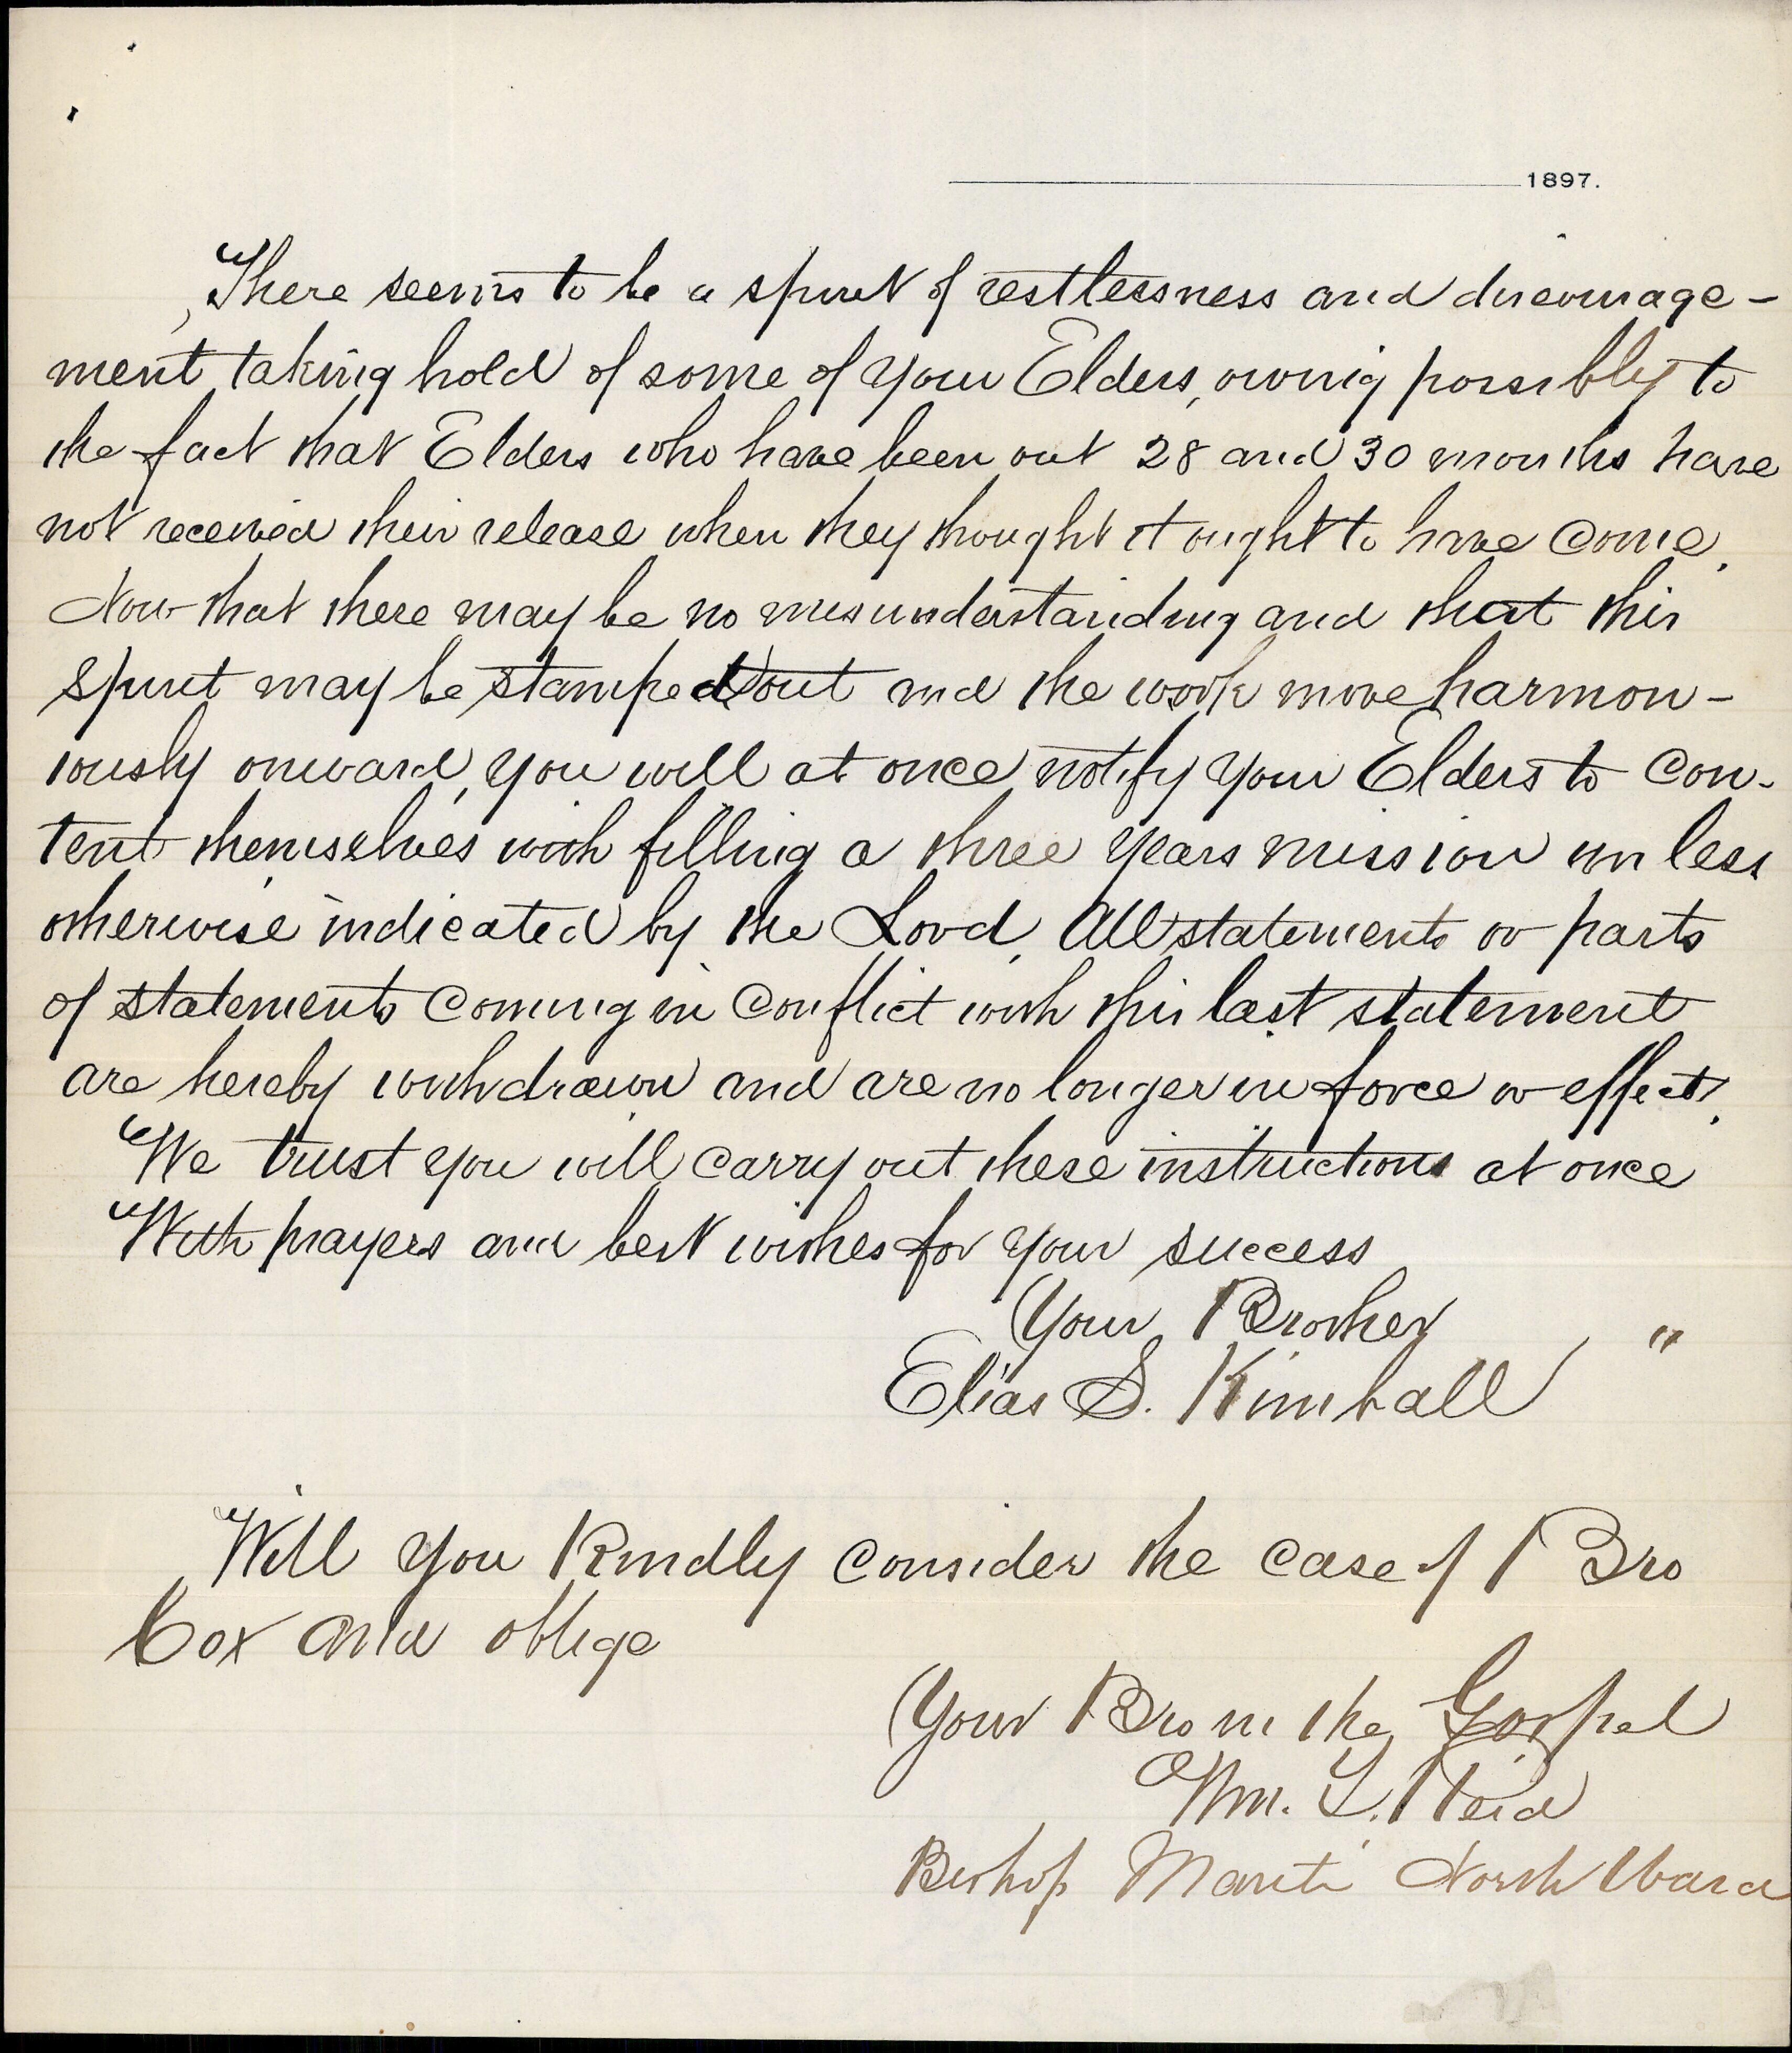 1897.
There seems to be a spirit of restlessness and discourage-
ment taking hold of some of your Elders, owing possibly to
the fact that Elders who have been out 28 and 30 months have
not received their release when they thought it ought to have come.
Now that there may be no misunderstanding and that this
spirit may be stamped out and the work move harmon-
iously onward, you will at once notify your Elders to con-
tent themselves with filling a three years mission unless
otherwise indicated by the Lord. All statements or parts
of statements coming in conflict with this last statement
are hereby withdrawn and are no longer in force or effect.
We trust you will carry out these instructions at once
With prayers and best wishes for your success
Your Brother "
Elias S. Kimball
Will you Kindly consider the case of Bro
Cox and oblige
Your Bro in the Gospel
Wm. L. Reid
Bishop Manti North Ward